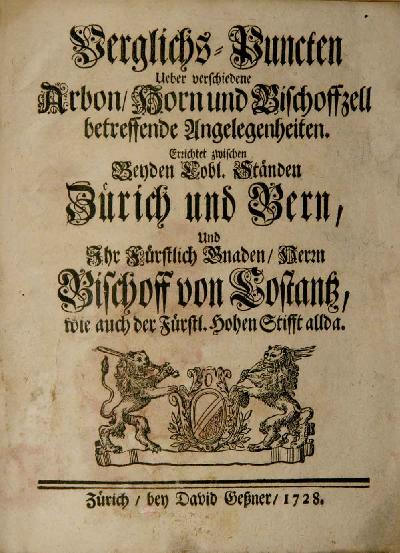 Verglichs-Puncten
Ueber verschiedene
Arbon/ Horn und Bischoffzell
betreffende Angelegenheiten.
Errichtet zwischen
Beyden Lobl. Ständen
Zürich und Bern,
Und
Ihr Fürstlich Gnaden/ Herrn
Bischoff von Costantz,
wie auch der Fürstl. Hohen Stifft allda.
Zürich / bey David Geßner/ 1728.